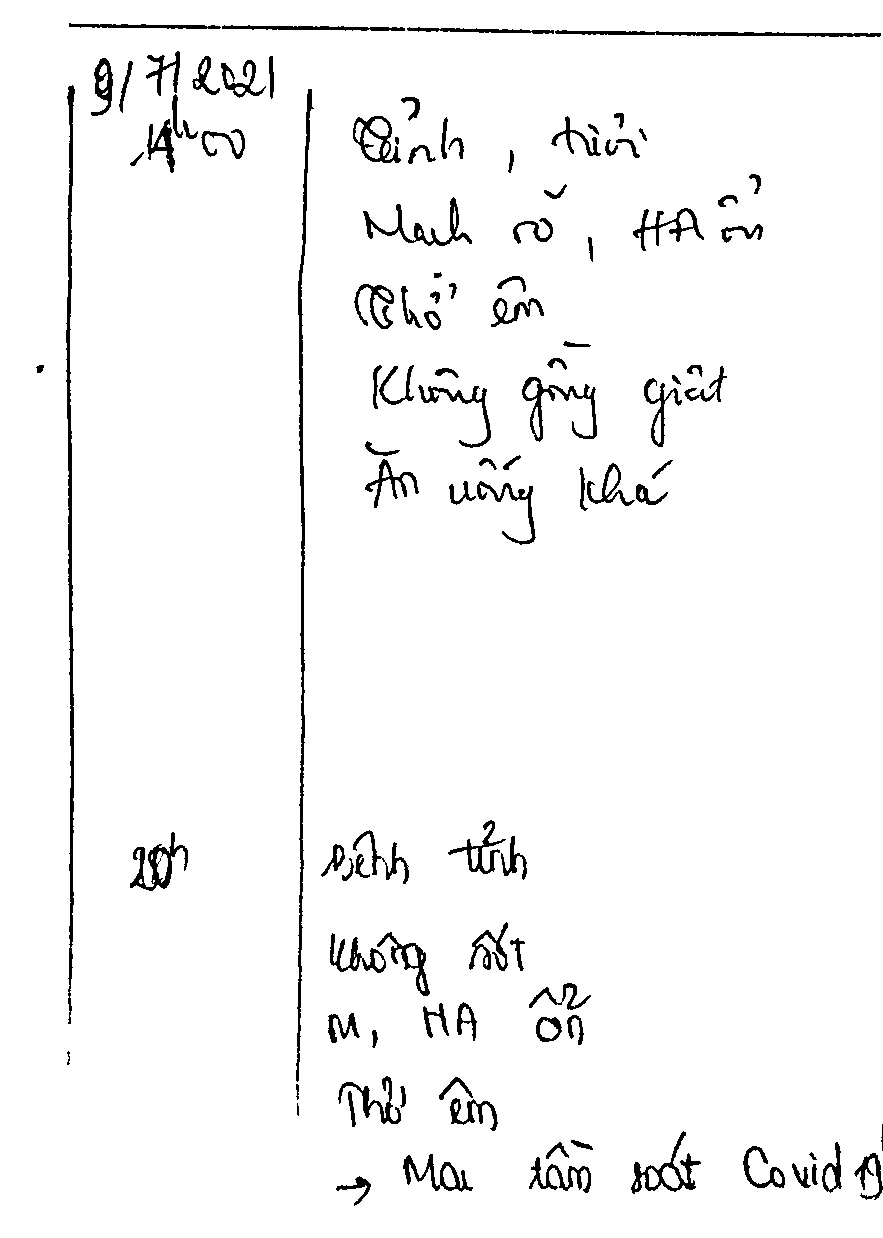 9/7/2021
14h00
Tỉnh, tươi
Mạch rõ, HA ổn
Thở êm
Không gồng giật
Ăn uống khá
20h
Bệnh tỉnh
Không sốt
M, HA ổn
Thở êm
→ Mai tầm soát Covid 19